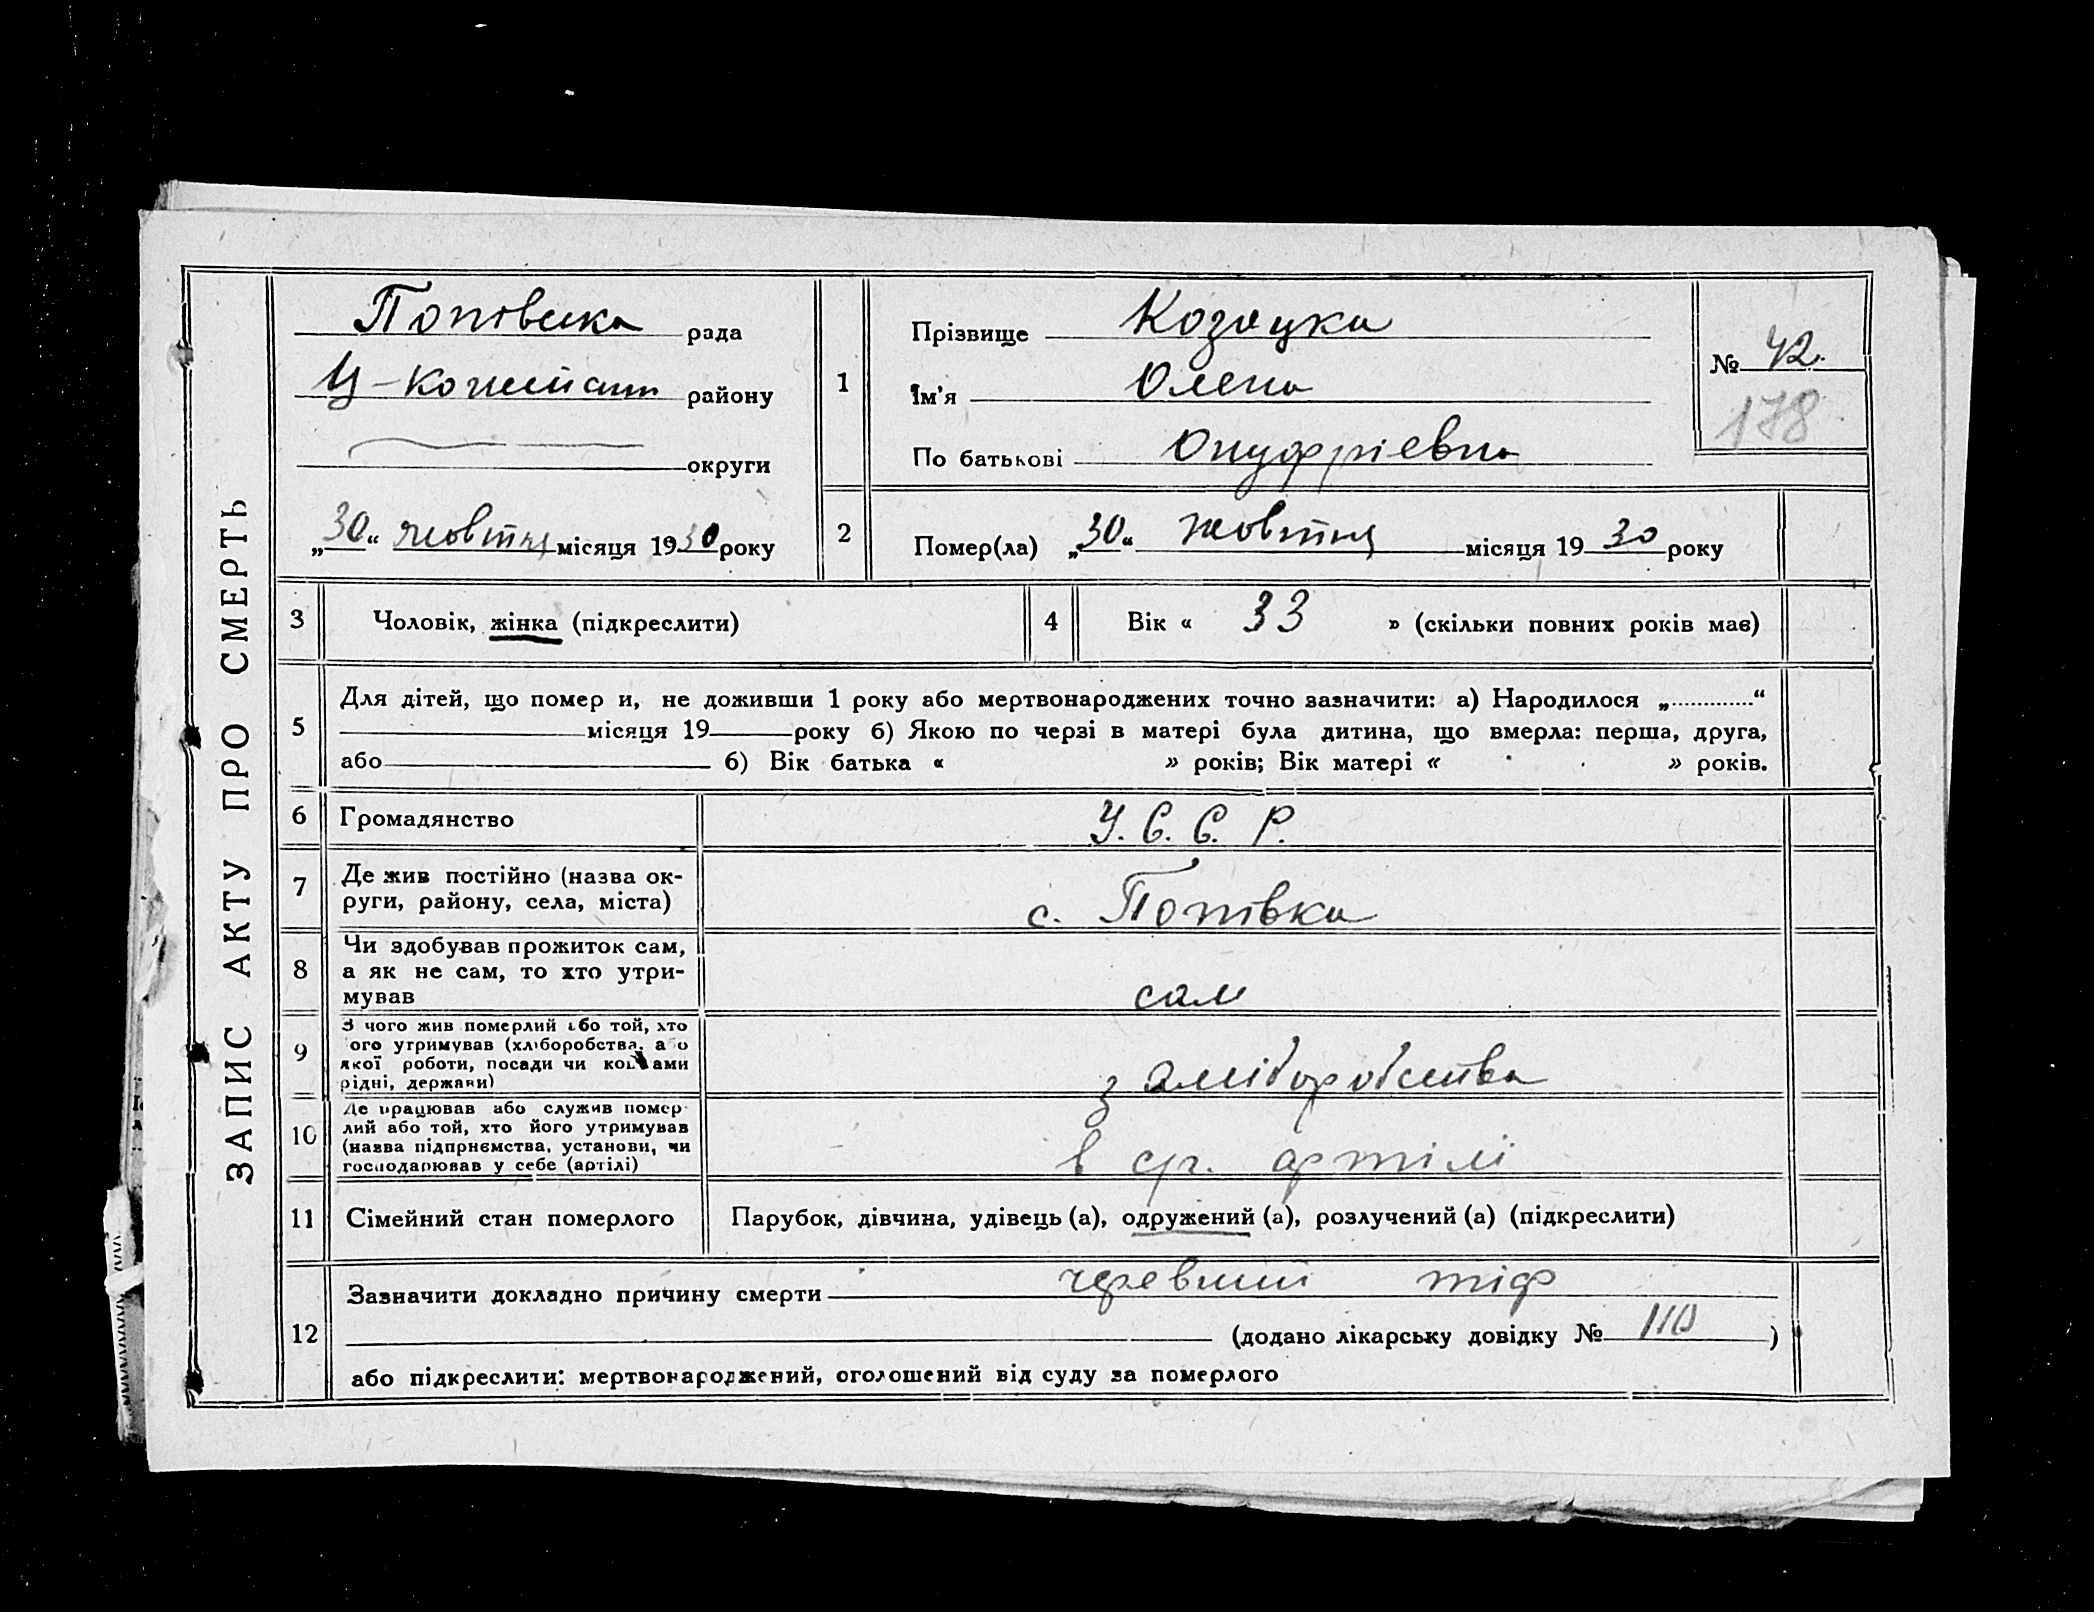 ЗАПИС АКТУ ПРО СМЕРТЬ
Попівська рада
району
округи
„30“ жовтня місяця 1930 року
1
Прізвище Козацка
Ім'я Олена
По батькові Онуфріевна
№ 42.
178
2
Помер(ла) „30“ жовтня місяця 1930 року
3 Чоловік, жінка (підкреслити)
4 Вік « 33 » (скільки повних років має)
5
Для дітей, що помер и, не доживши 1 року або мертвонароджених точно зазначити: а) Народилося „.............“
місяця 19 року б) Якою по черзі в матері була дитина, що вмерла: перша, друга,
або б) Вік батька « » років; Вік матері « » років.
6 Громадянство У. С. С. Р.
7 Де жив постійно (назва ок-
руги, району, села, міста)
с. Попівка
8 Чи здобував прожиток сам,
а як не сам, то хто утри-
мував
сам
9 З чого жив померлий або той, хто
ого утримував (хліборобства, або
якої роботи, посади чи коштами
рідні, держави)
з хліборобства
10 Де працював або служив помер-
лий або той, хто його утримував
(назва підприємства, установи, чи
господарював у себе (артілі)
в с/г. артілі
11 Сімейний стан померлого Парубок, дівчина, удівець (а), одружений (а), розлучений (а) (підкреслити)
12
Зазначити докладно причину смерти черевний тіф
(додано лікарську довідку № 110 )
або підкреслити: мертвонароджений, оголошений від суду за померлого